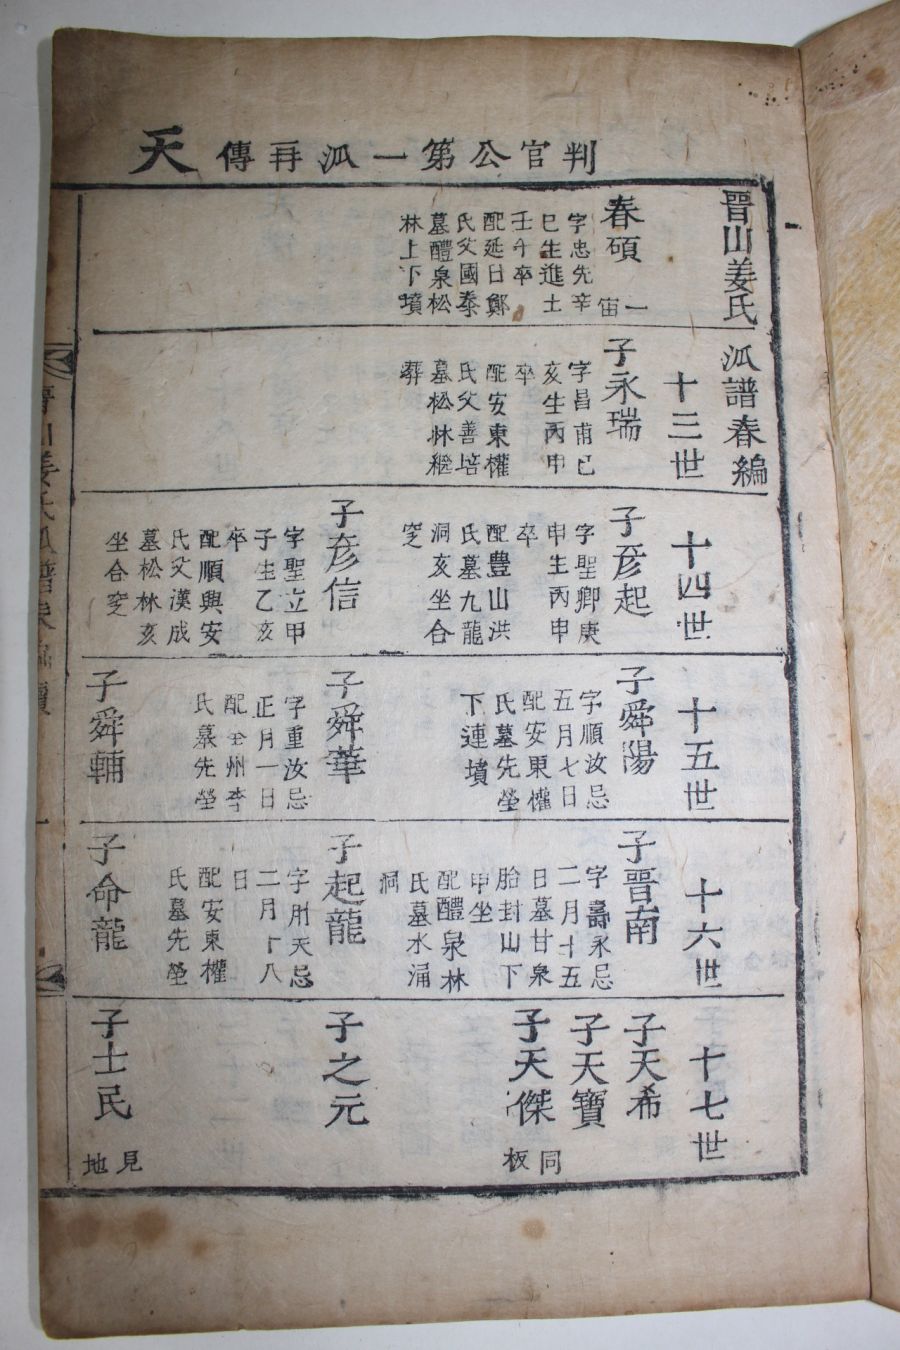 判官公第一派再傳 天
晋山姜氏
派譜春編
春碩
一宙
字忠先辛
巳生進士
壬午卒
配延日鄭
氏父國泰
墓醴泉松
林上下墳
十三世
子永瑞
字昌甫巳
亥生丙申
卒
配安東權
氏父善培
墓松林繼
葬
十四世
子彦起
字聖卿庚
申生丙申
卒
配豊山洪
氏墓九龍
洞亥坐合
窆
子彦信
字聖立甲
子生乙亥
卒
配順興安
氏父漢成
墓松林亥
坐合窆
十五世
子舜陽
字順汝忌
五月七日
配安東權
氏墓先塋
下連墳
子舜華
字重汝忌
正月一日
配全州李
氏墓先塋
子舜輔
十六世
子晋南
字壽永忌
二月十五
日墓甘泉
胎封山下
甲坐
配醴泉林
氏墓水涌
洞
子起龍
字肘天忌
二月十八
日
配安東權
氏墓先塋
子命龍
十七世
子天希
子天寶
子天傑
同板
子之元
子士民
見地